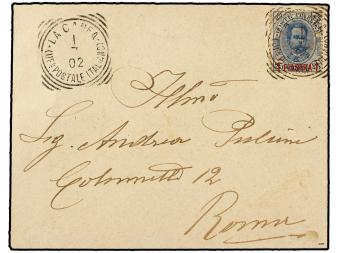 LA CANEA
1
02
UFF. POSTALE ITAL
1 PIASTRA 1
Illmo
Sig. Andrea
Colonnette 12
Roma